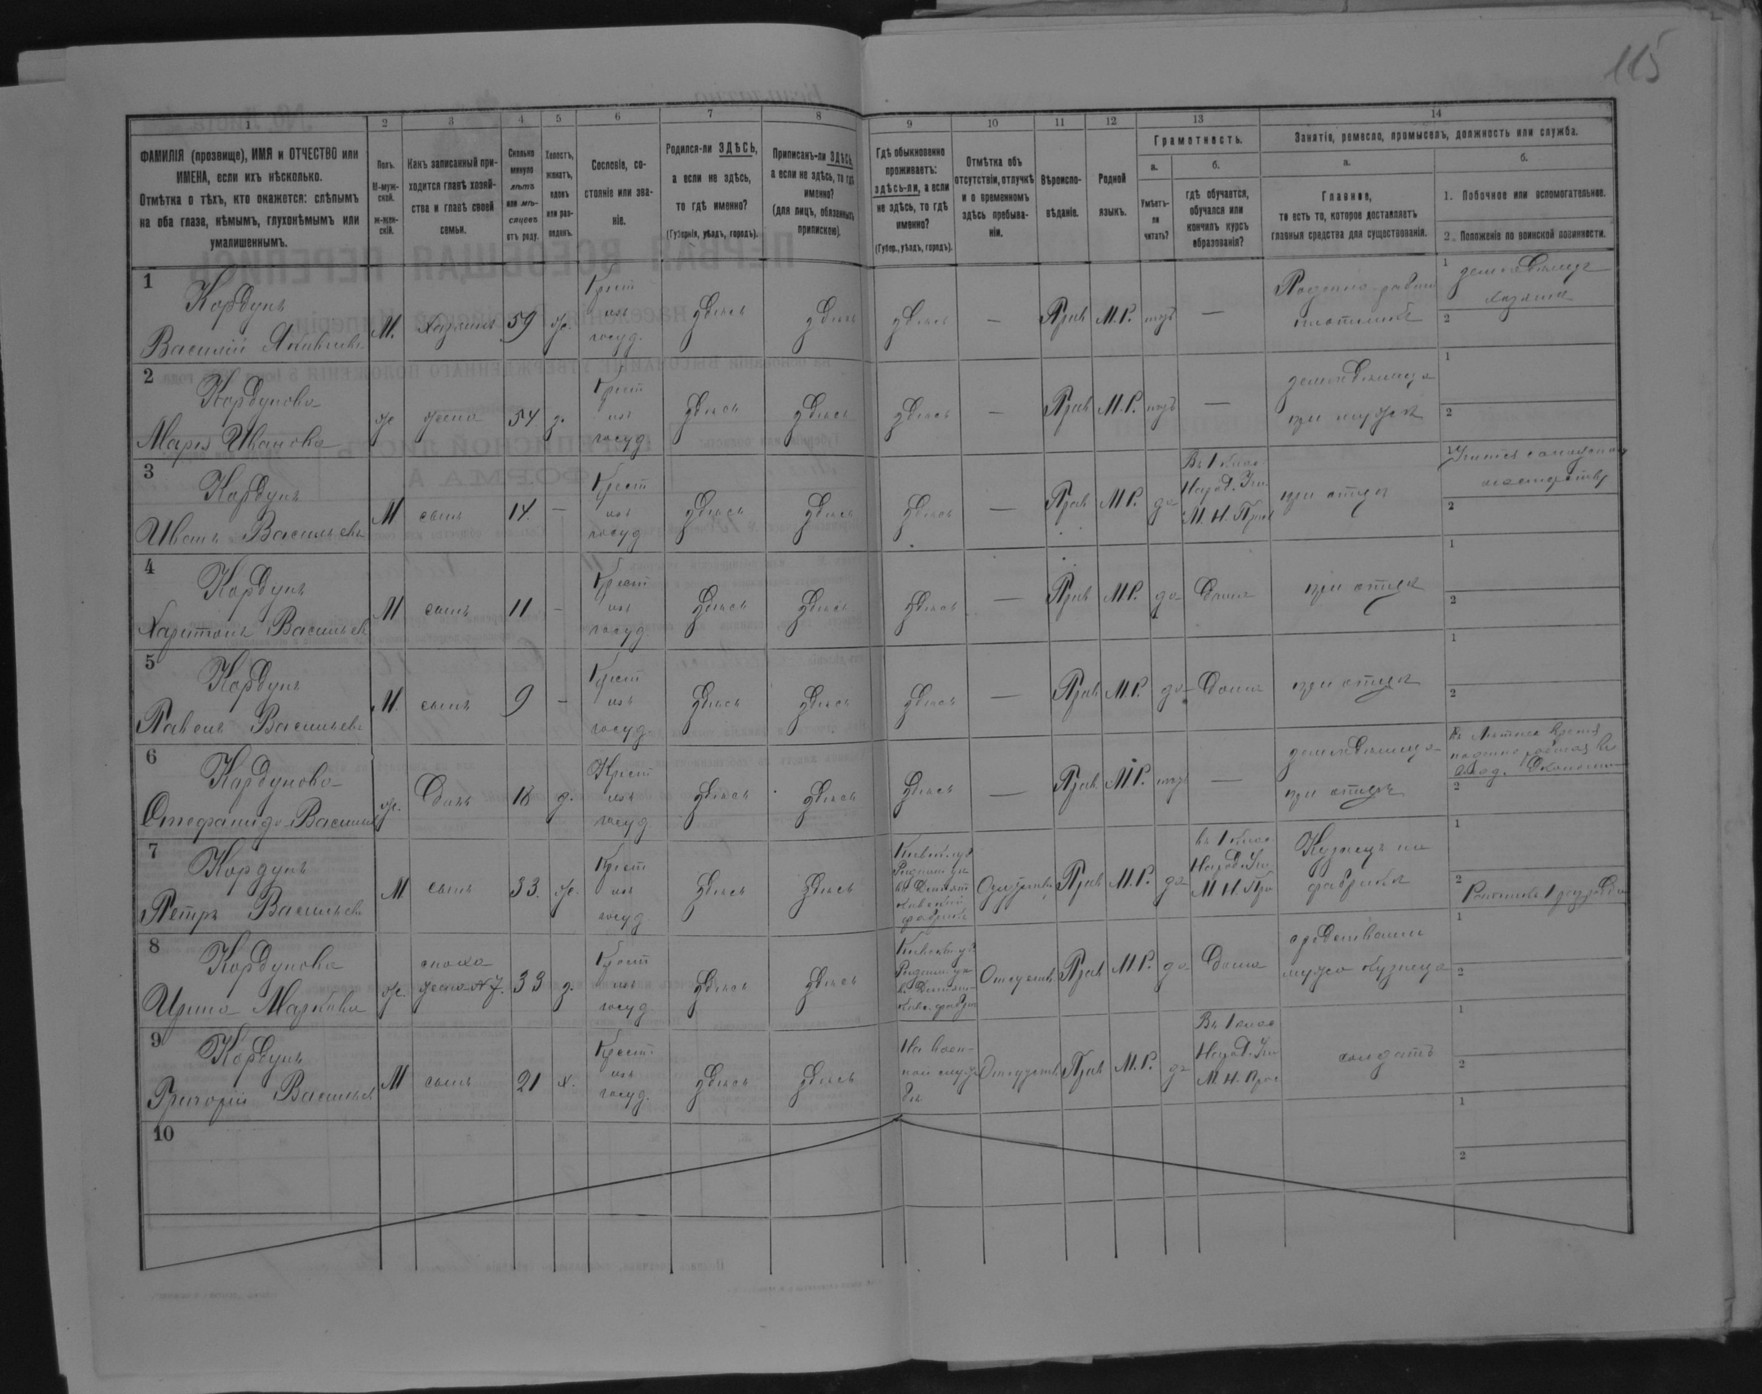 115
1
2
3
4
5
6
7
8
9
10
11
12
13
14
ФАМИЛІЯ (прозвище), ИМЯ и ОТЧЕСТВО или
ИМЕНА, если ихъ нѣсколько.
Отмѣтка о тѣхъ, кто окажется: слѣпымъ
на оба глаза, нѣмымъ, глухонѣмымъ или
умалишеннымъ.
Полъ.
М-муж-
ской.
ж-жен-
скій.
Какъ записанный при-
ходится главѣ хозяй-
ства и главѣ своей
семьи.
Сколько
минуло
лѣтъ
или мѣ-
сяцевъ
отъ роду.
Холостъ,
женатъ,
вдовъ
или раз-
веденъ.
Сословіе, со-
стояніе или зва-
ніе.
Родился-ли ЗДѢСЬ,
а если не здѣсь,
то гдѣ именно?
(Губернія, уѣздъ, городъ).
Приписанъ-ли ЗДѢСЬ,
а если не здѣсь, то гдѣ
именно?
(для лицъ, обязанныхъ
припискою).
Гдѣ обыкновенно
проживаетъ:
здѣсь-ли, а если
не здѣсь, то гдѣ
именно?
(Губер., уѣздъ, городъ).
Отмѣтка объ
отсутствіи, отлучкѣ
и о временномъ
здѣсь пребыва-
ніи.
Вѣроиспо-
вѣданіе.
Родной
языкъ.
Грамотность.
а.
Умѣетъ-
ли
читать?
б.
гдѣ обучается,
обучался или
кончилъ курсъ
образованія?
Занятіе, ремесло, промыселъ, должность или служба.
а.
Главное,
то есть то, которое доставляетъ
главныя средства для существованія.
б.
1. Побочное или вспомогательное.
2. Положеніе по воинской повинности.
1
Кордунъ
Василій Яковлевъ
М. Хозяинъ 59 ж. Крест изъ госуд. здѣсь здѣсь здѣсь — Прав М.Р. нѣтъ —
2
Кордунова
Марія Иванова
ж жена 54 з. Крест изъ госуд здѣсь здѣсь здѣсь — Прав М.Р. нѣтъ — при мужѣ
3
Кордунъ
Иванъ Васильевъ
М сынъ 14 — Крест изъ госуд здѣсь здѣсь здѣсь — Прав М.Р. да Въ 1 клас Народ. Учи М. Н. Прос при отцѣ
4
Кордунъ
Харитонъ Васильевъ
М сынъ 11 — Крест изъ госуд здѣсь здѣсь здѣсь — Прав М.Р. да Дома при отцѣ
5
Кордунъ
Павелъ Васильевъ
М. сынъ 9 — Крест изъ госуд здѣсь здѣсь здѣсь — Прав М.Р. да Дома при отцѣ
6
Кордунова
Стефанида Васильев
ж. Дочь 18 д. Крест изъ госуд здѣсь здѣсь здѣсь — Прав М.Р. нѣтъ — при отцѣ
7
Кордунъ
Петръ Васильевъ
М сынъ 33. ж. Крест изъ госуд здѣсь здѣсь Отсутств Прав М.Р. да въ 1 клас Народ. Учи М. Н. Про Кузнецъ на фабрикѣ
8
Кордунова
Ирина Маркова
ж. сноха жена №7. 33 з. Крест изъ госуд здѣсь здѣсь Отсутств Прав М.Р. да Дома средствами мужа кузнеца
9
Кордунъ
Григорій Васильев
М сынъ 21 х. Крест изъ госуд. здѣсь здѣсь На воен- ной служ бѣ Отсутств Прав М.Р. да Въ 1 клас Народ. Учи М. Н. Прос солдатъ
10